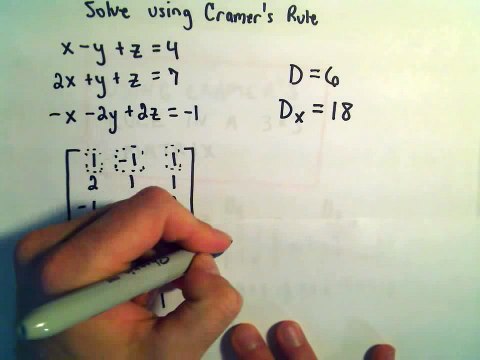 Solve using Cramer's Rule
x - y + z = 4
2x + y + z = 7
-x - 2y + 2z = -1
D = 6
Dx = 18
1 -1 1
2 1 1
-1
1